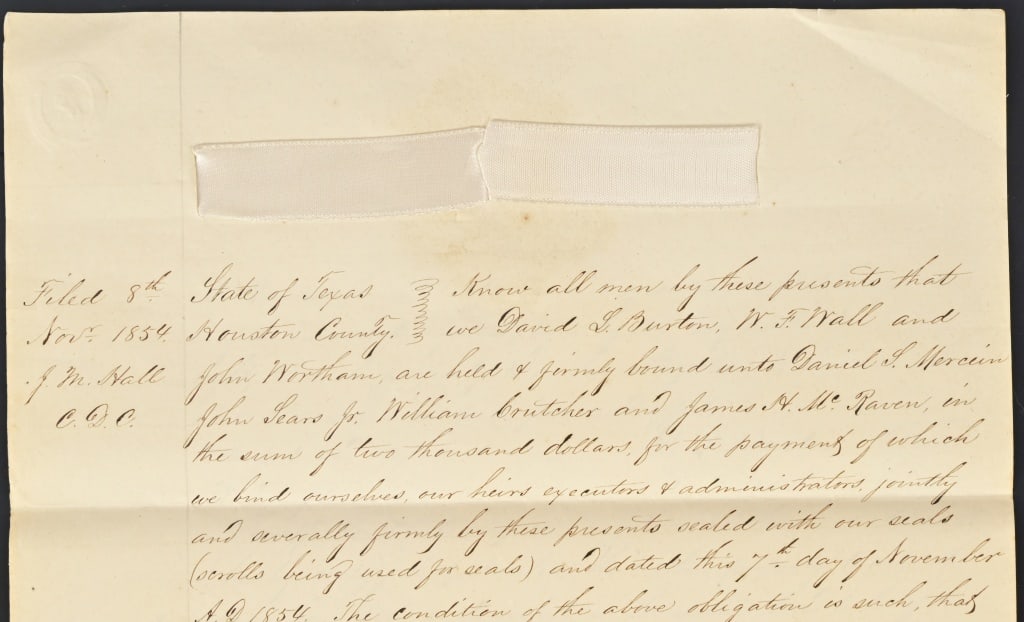 Filed 8th
Novr. 1854.
J. M. Hall
C. D. C.
State of Texas
Houston County.
Know all men by these presents that
we David L. Burton, W. F. Wall and
John Wortham, are held & firmly bound unto Daniel S. Mercein
John Sears Jr. William Crutcher and James H. Mc. Raven, in
the sum of two thousand dollars, for the payment of which
we bind ourselves, our heirs executors & administrators, jointly
and severally firmly by these presents sealed with our seals
(scrolls being used for seals) and dated this 7th day of November
A.D 1854. The condition of the above obligation is such, that